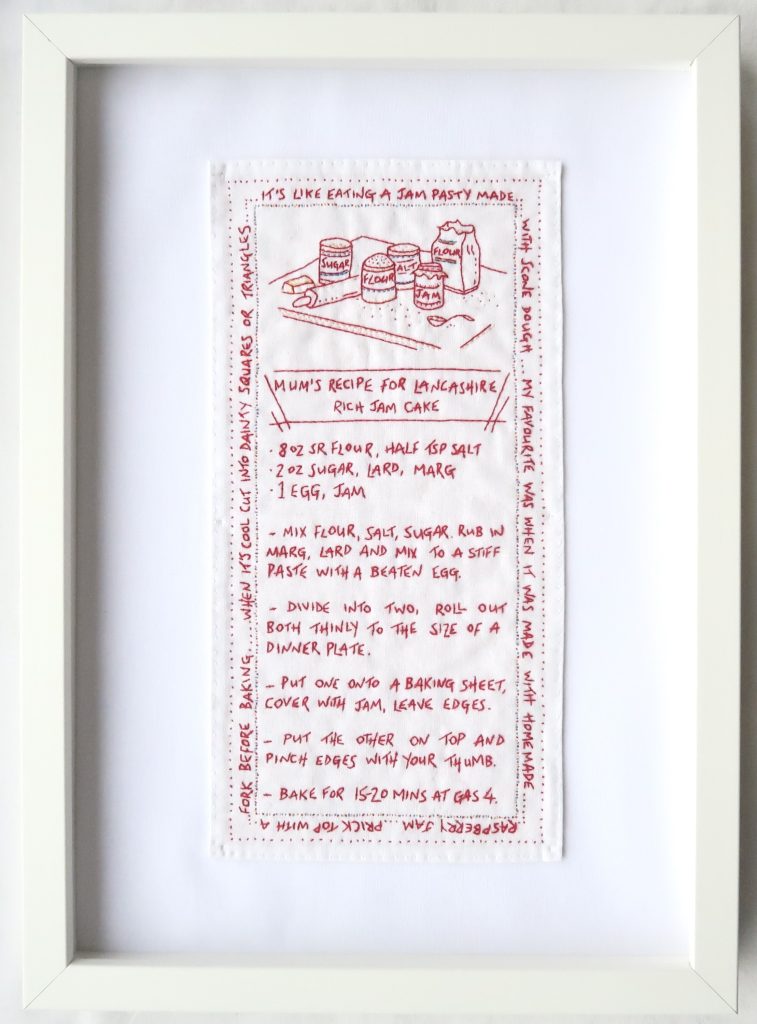 IT'S LIKE EATING A JAM PASTY MADE...
WITH SCONE DOUGH... MY FAVOURITE WAS WHEN IT WAS MADE WITH HOMEMADE...
RASPBERRY JAM... PRICK TOP WITH A
FORK BEFORE BAKING.....WHEN IT'S COOL CUT INTO DAINTY SQUARES OR TRIANGLES...
SUGAR
FLOUR
ALT
JAM
FLOUR
MUM'S RECIPE FOR LANCASHIRE
RICH JAM CAKE
· 8OZ SR FLOUR, HALF TSP SALT
· 2 OZ SUGAR, LARD, MARG
· 1 EGG, JAM
- MIX FLOUR, SALT, SUGAR. RUB IN
MARG, LARD AND MIX TO A STIFF
PASTE WITH A BEATEN EGG.
- DIVIDE INTO TWO, ROLL OUT
BOTH THINLY TO THE SIZE OF A
DINNER PLATE.
- PUT ONE ONTO A BAKING SHEET,
COVER WITH JAM, LEAVE EDGES.
- PUT THE OTHER ON TOP AND
PINCH EDGES WITH YOUR THUMB.
- BAKE FOR 15-20 MINS AT GAS 4.